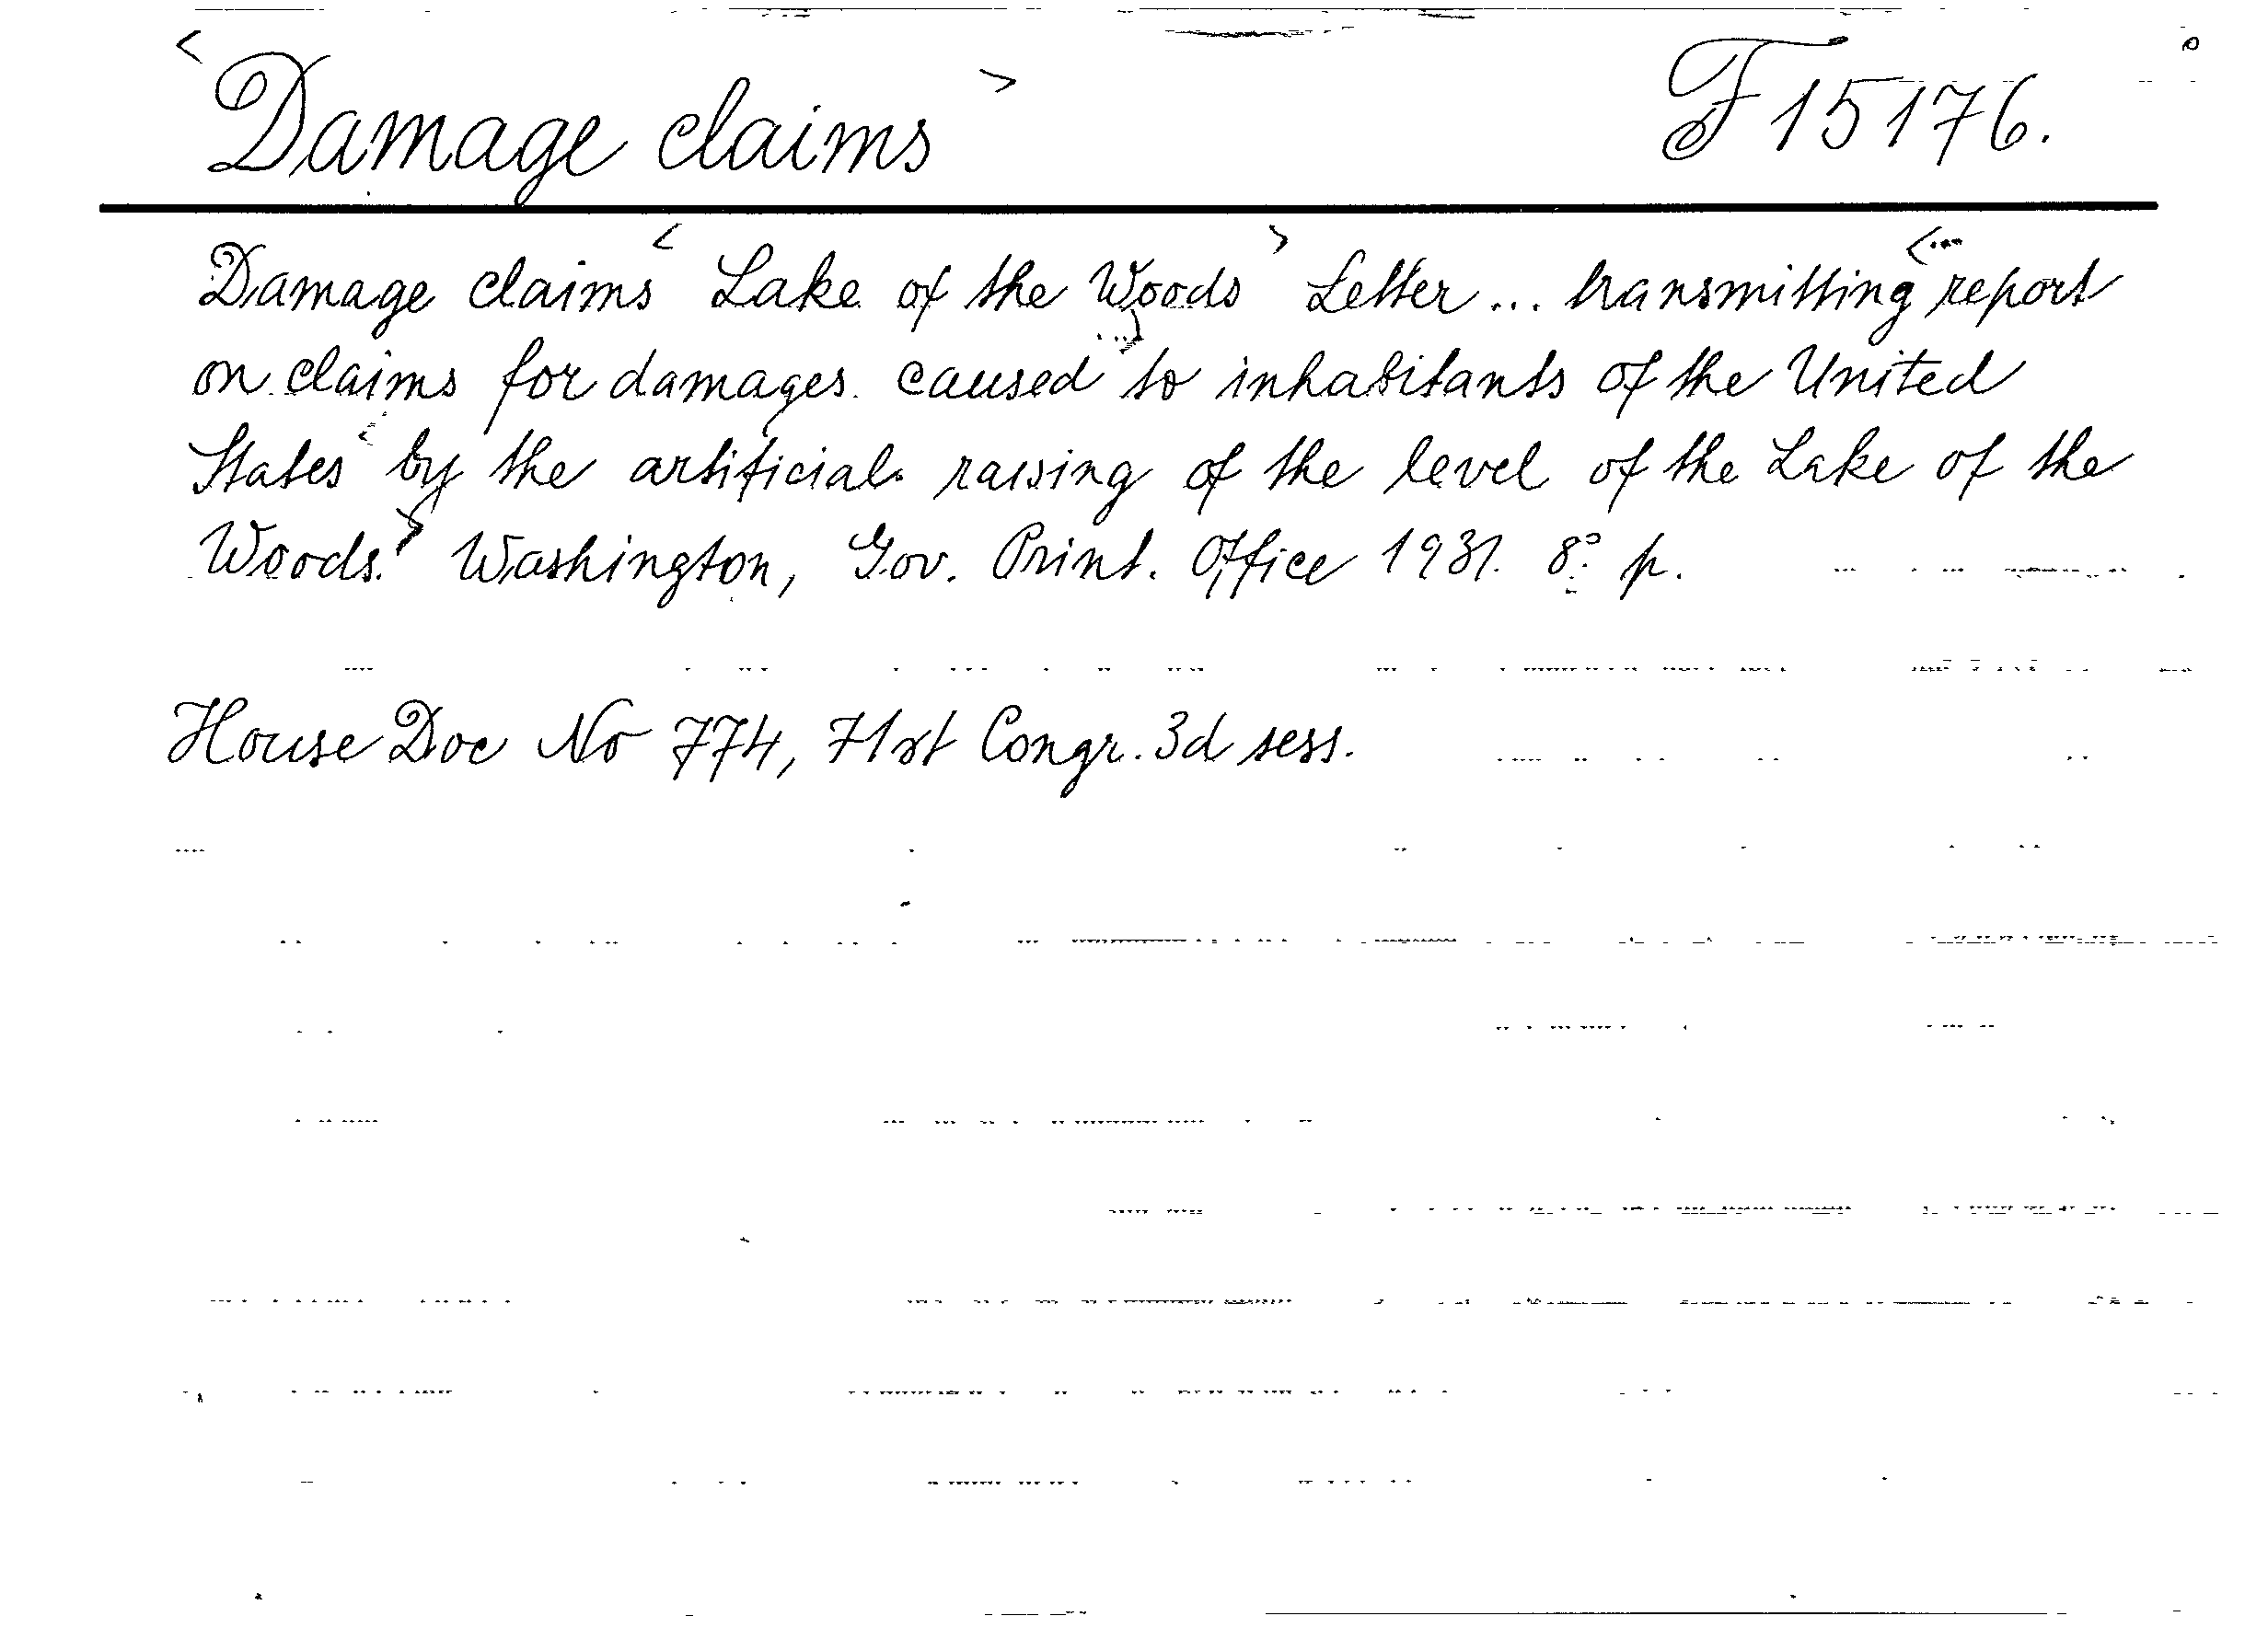 <Damage claims> F 15176.
Damage claims <Lake of the Woods> Letter ... transmitting <report
on claims for damages caused> to inhabitants of the United
States <by the artificial raising of the level of the Lake of the
Woods.> Washington, Gov. Print. Office 1931. 8° p.
House Doc No 774, 71st Congr. 3d sess.